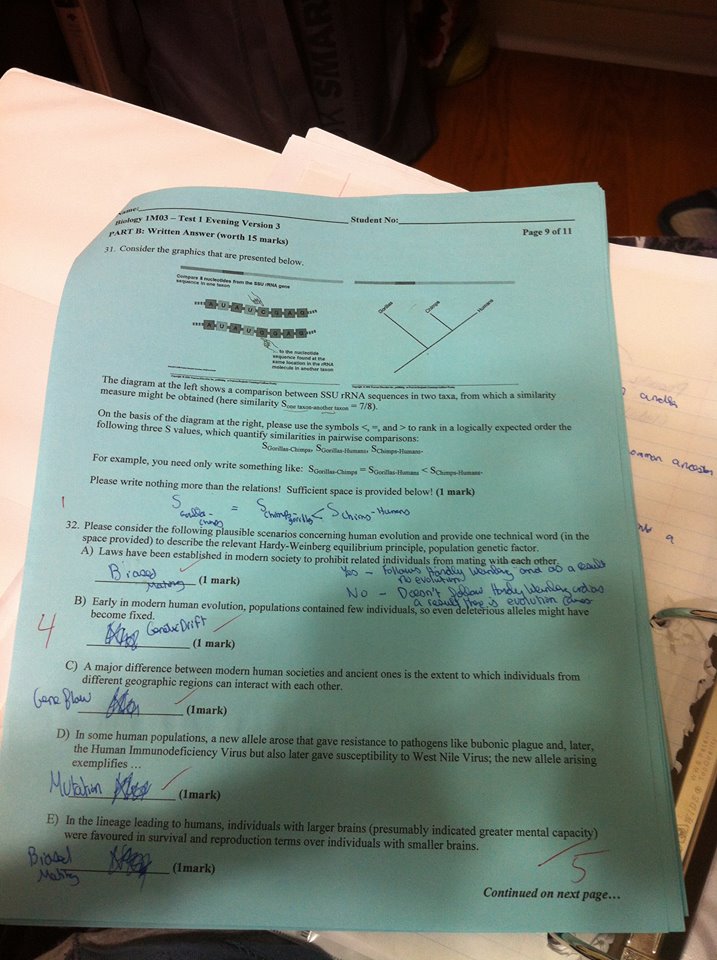 Name:
Student No:
Biology 1M03 – Test 1 Evening Version 3
Page 9 of 11
PART B: Written Answer (worth 15 marks)
31. Consider the graphics that are presented below.
Compare 8 nucleotides from the SSU rRNA gene
sequence in one taxon
A U A U C U A G
A U A U C G A G
... to the nucleotide
sequence found at the
same location in the rRNA
molecule in another taxon
Gorillas
Chimps
Humans
The diagram at the left shows a comparison between SSU rRNA sequences in two taxa, from which a similarity
measure might be obtained (here similarity Sone taxon-another taxon = 7/8).
On the basis of the diagram at the right, please use the symbols <, =, and > to rank in a logically expected order the
following three S values, which quantify similarities in pairwise comparisons:
SGorillas-Chimps, SGorillas-Humans, SChimps-Humans.
For example, you need only write something like: SGorillas-Chimps = SGorillas-Humans < SChimps-Humans.
Please write nothing more than the relations! Sufficient space is provided below! (1 mark)
1
S = S < S Chimps-Humans
32. Please consider the following plausible scenarios concerning human evolution and provide one technical word (in the
space provided) to describe the relevant Hardy-Weinberg equilibrium principle, population genetic factor.
A) Laws have been established in modern society to prohibit related individuals from mating with each other.
Biased
Mating
(1 mark)
Yes - follows Hardy Weinberg and as a result
no evolution
No - Doesn't follow Hardy Weinberg and as
a result there is evolution
B) Early in modern human evolution, populations contained few individuals, so even deleterious alleles might have
become fixed.
4
Genetic Drift
(1 mark)
C) A major difference between modern human societies and ancient ones is the extent to which individuals from
different geographic regions can interact with each other.
Gene flow
(1mark)
D) In some human populations, a new allele arose that gave resistance to pathogens like bubonic plague and, later,
the Human Immunodeficiency Virus but also later gave susceptibility to West Nile Virus; the new allele arising
exemplifies …
Mutation
(1mark)
E) In the lineage leading to humans, individuals with larger brains (presumably indicated greater mental capacity)
were favoured in survival and reproduction terms over individuals with smaller brains.
Biased
Mating
(1mark)
5
Continued on next page…
ommon ancestor